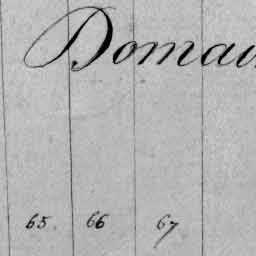 Domai
65. 66 67